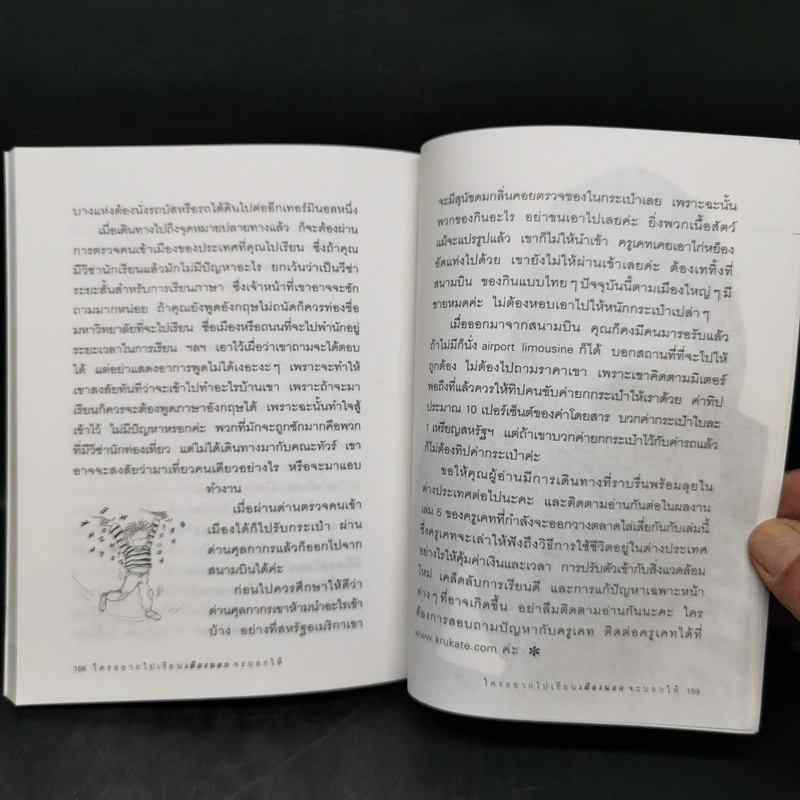 บางแห่งต้องนั่งรถบัสหรือรถใต้ดินไปต่ออีกเทอร์มินอลหนึ่ง
เมื่อเดินทางไปถึงจุดหมายปลายทางแล้ว ก็จะต้องผ่าน
การตรวจคนเข้าเมืองของประเทศที่คุณไปเรียน ซึ่งถ้าคุณ
มีวีซ่านักเรียนแล้วมักไม่มีปัญหาอะไร ยกเว้นว่าเป็นวีซ่า
ระยะสั้นสำหรับการเรียนภาษา ซึ่งเจ้าหน้าที่เขาอาจจะซัก
ถามมากหน่อย ถ้าคุณยังพูดอังกฤษไม่ถนัดก็ควรท่องชื่อ
มหาวิทยาลัยที่จะไปเรียน ชื่อเมืองหรือถนนที่จะไปพำนักอยู่
ระยะเวลาในการเรียน ฯลฯ เอาไว้เผื่อว่าเขาถามจะได้ตอบ
ได้ แต่อย่าแสดงอาการพูดไม่ได้เงอะงะๆ เพราะจะทำให้
เขาสงสัยทันทีว่าจะเข้าไปทำอะไรบ้านเขา เพราะถ้าจะมา
เรียนก็ควรจะต้องพูดภาษาอังกฤษได้ เพราะฉะนั้นทำใจสู้
เข้าไว้ ไม่มีปัญหาหรอกค่ะ พวกที่มักจะถูกซักมากคือพวก
ที่มีวีซ่านักท่องเที่ยว แต่ไม่ได้เดินทางมากับคณะทัวร์ เขา
อาจจะสงสัยว่ามาเที่ยวคนเดียวอย่างไร หรือจะมาแอบ
ทำงาน
เมื่อผ่านด่านตรวจคนเข้า
เมืองได้ก็ไปรับกระเป๋า ผ่าน
ด่านศุลกากรแล้วก็ออกไปจาก
สนามบินได้ค่ะ
ก่อนไปควรศึกษาให้ดีว่า
ด่านศุลกากรเขาห้ามนำอะไรเข้า
บ้าง อย่างที่สหรัฐอเมริกาเขา
158 ใครอยากไปเรียนเมืองนอกจะบอกให้
จะมีสุนัขดมกลิ่นคอยตรวจของในกระเป๋าเลย เพราะฉะนั้น
พวกของกินอะไร อย่าขนเอาไปเลยค่ะ ยิ่งพวกเนื้อสัตว์
แม้จะแปรรูปแล้ว เขาก็ไม่ให้นำเข้า ครูเคทเคยเอาไก่หยอง
อัดแท่งไปด้วย เขายังไม่ให้ผ่านเข้าเลยค่ะ ต้องเททิ้งที่
สนามบิน ของกินแบบไทยๆ ปัจจุบันนี้ตามเมืองใหญ่ๆ มี
ขายหมดค่ะ ไม่ต้องหอบเอาไปให้หนักกระเป๋าเปล่าๆ
เมื่อออกมาจากสนามบิน คุณก็คงมีคนมารอรับแล้ว
ถ้าไม่มีก็นั่ง airport limousine ก็ได้ บอกสถานที่ที่จะไปให้
ถูกต้อง ไม่ต้องไปถามราคาเขา เพราะเขาคิดตามมิเตอร์
พอถึงที่แล้วควรให้ทิปคนขับค่ายกกระเป๋าให้เราด้วย ค่าทิป
ประมาณ 10 เปอร์เซ็นต์ของค่าโดยสาร บวกค่ากระเป๋าใบละ
1 เหรียญสหรัฐฯ แต่ถ้าเขาบวกค่ายกกระเป๋าไว้กับค่ารถแล้ว
ก็ไม่ต้องทิปค่ากระเป๋าค่ะ
ขอให้คุณผู้อ่านมีการเดินทางที่ราบรื่นพร้อมลุยใน
ต่างประเทศต่อไปนะคะ และติดตามอ่านกันต่อในผลงาน
เล่ม 5 ของครูเคทที่กำลังจะออกวางตลาดไล่เลี่ยกันกับเล่มนี้
ซึ่งครูเคทจะเล่าให้ฟังถึงวิธีการใช้ชีวิตอยู่ในต่างประเทศ
อย่างไรให้คุ้มค่าเงินและเวลา การปรับตัวเข้ากับสิ่งแวดล้อม
ใหม่ เคล็ดลับการเรียนดี และการแก้ปัญหาเฉพาะหน้า
ต่างๆ ที่อาจเกิดขึ้น อย่าลืมติดตามอ่านกันนะคะ ใคร
ต้องการสอบถามปัญหากับครูเคท ติดต่อครูเคทได้ที่
www.krukate.com ค่ะ ✻
ใครอยากไปเรียนเมืองนอกจะบอกให้ 159